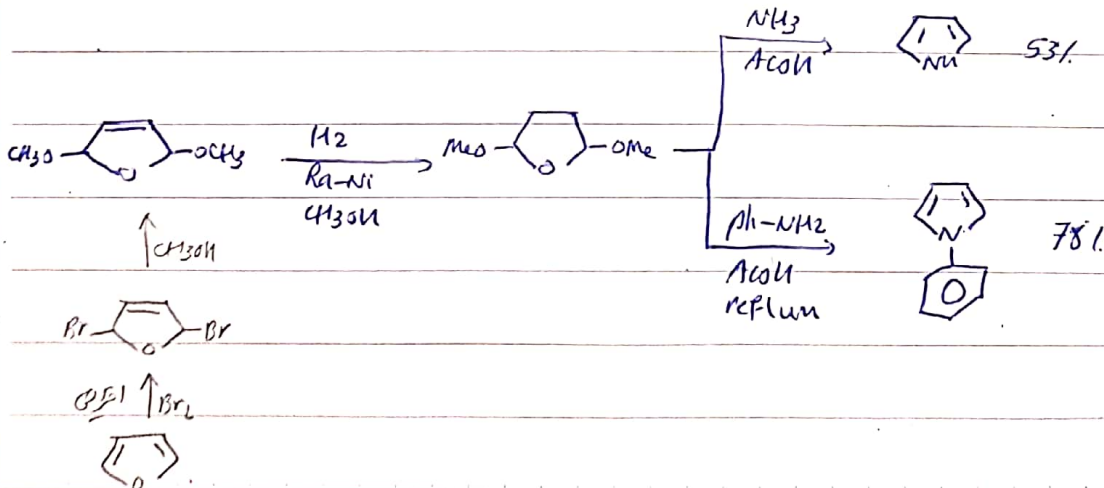 NH3
AcOH
NH
53%
CH3O
O
OCH3
H2
Ra-Ni
CH3OH
MeO
O
OMe
CH3OH
Ph-NH2
AcOH
reflux
N
78%
Br
O
Br
Br2
O